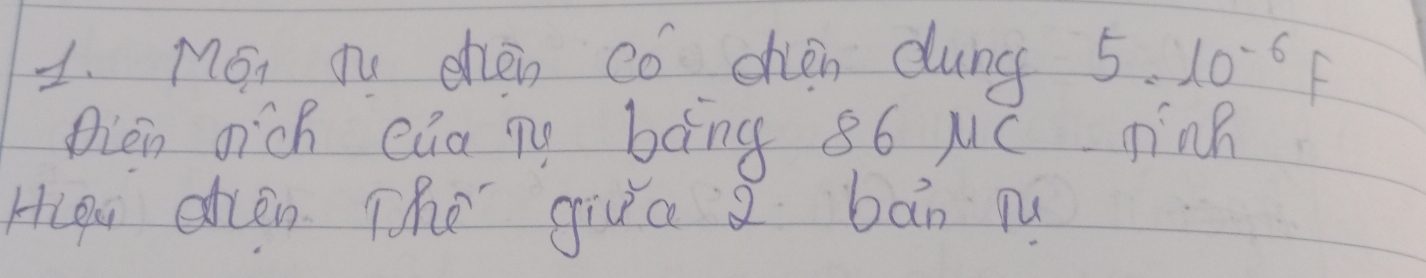 1. Một tụ điện có điện dung 5.10⁻⁶ F
Điện tích của tụ bằng 86 μC tính
Hiệu điện thế giữa 2 bản tụ